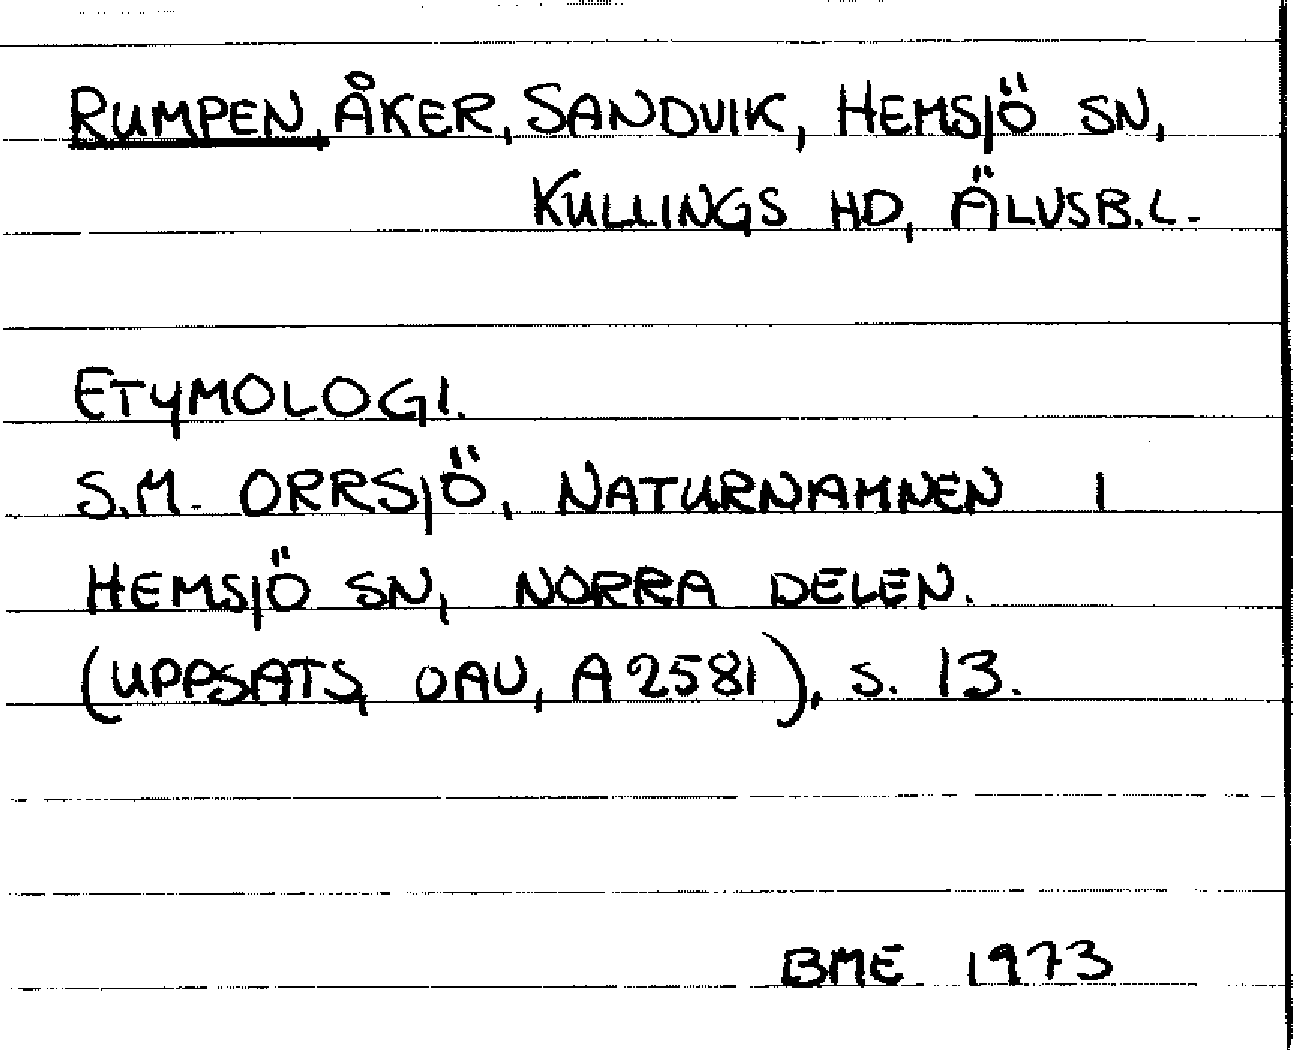 RUMPEN, ÅKER, SANDVIK, HEMSJÖ SN,
KULLINGS HD, ÄLVSB.L.
ETYMOLOGI.
S.M. ORRSJÖ, NATURNAMNEN I
HEMSJÖ SN, NORRA DELEN.
(UPPSATS, OAU, A 2581), S. 13.
BME 1973